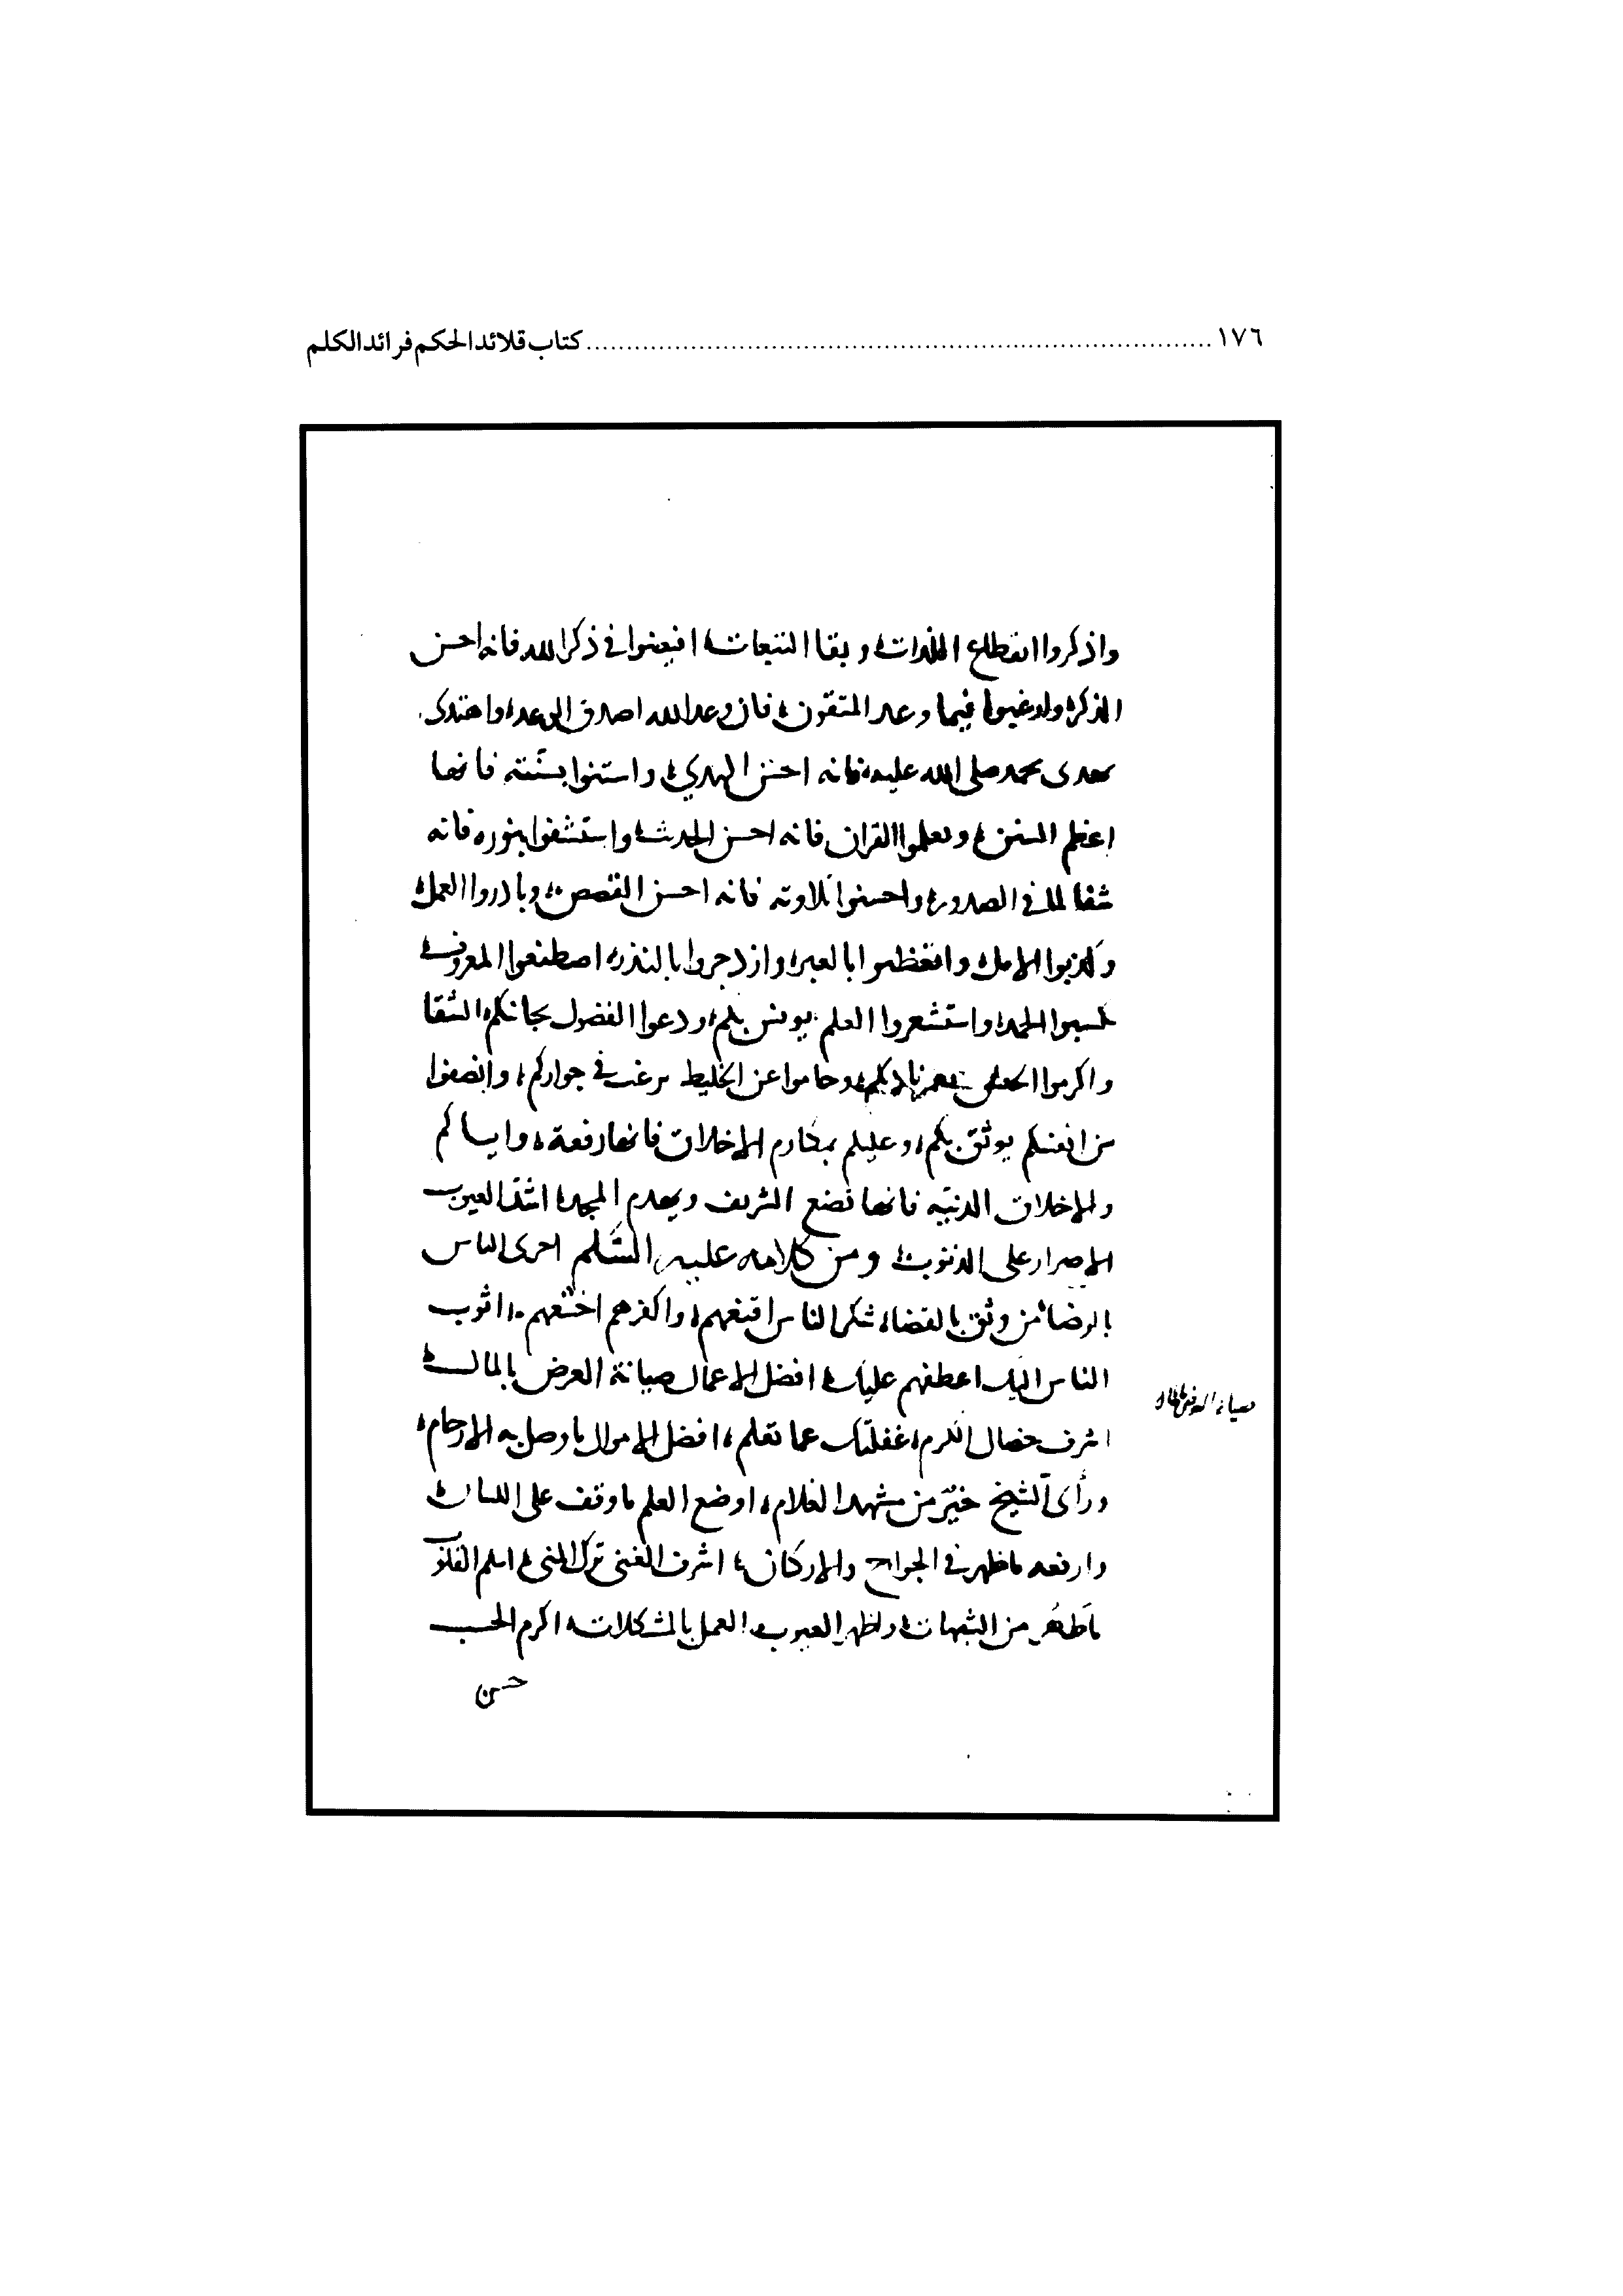 ١٧٦ ........ كتاب قلائد الحكم فرائد الكلم
واذكروا انقطاع اللذات وبقا التبعات افيضوا في ذكر الله فانه احسن
الذكر وارغبوا فيما وعد المتقون فان وعد الله اصدق الوعد واهتدى
بهدى محمد صلى الله عليه فانه احسن الهدي واستنوا بسنته فانها
اعظم السنن وتعلموا القران فانه احسن الحديث واستشفوا بنوره فانه
شفا لما في الصدور واحسنوا تلاوته فانه احسن القصص وبادروا العمل
وكذبوا الامل واتعظوا بالعبر وازدجروا بالنذر اصطنعوا المعروف
تكسبوا الحمد واستشعروا العلم يونس بكم ودعوا الفضول يجانبكم السقا
واكرموا الجليس يعمر ناديكم وحاموا عن الخليط يرغب في جواركم وانصفوا
من انفسكم يوثق بكم وعليكم بمكارم الاخلاق فانها رفعة واياكم
والاخلاق الدنيه فانها تضع الشريف ويهدم المجد اشد العيوب
الاصرار على الذنوب ومن كلامه عليه السلم احرى الناس
بالرضا من وثق بالقضا شكر الناس اقنعهم واكفرهم اخشعهم اثوب
الناس اليك اعطفهم عليك افضل الاعمال صيانة العرض بالمال
اشرف خصال الكرم غفلتك عما تعلم افضل الاموال ما وصل به الارحام
ورأى الشيخ خير من مشهد الغلام اوضع العلم ما وقف على اللسان
وارفعه ما ظهر في الجوارح والاركان اشرف الغنى ترك المنى اسلم القلوب
ما طهر من الشبهات واظهر العيوب العمل بالمشكلات اكرم الحسب
حسن